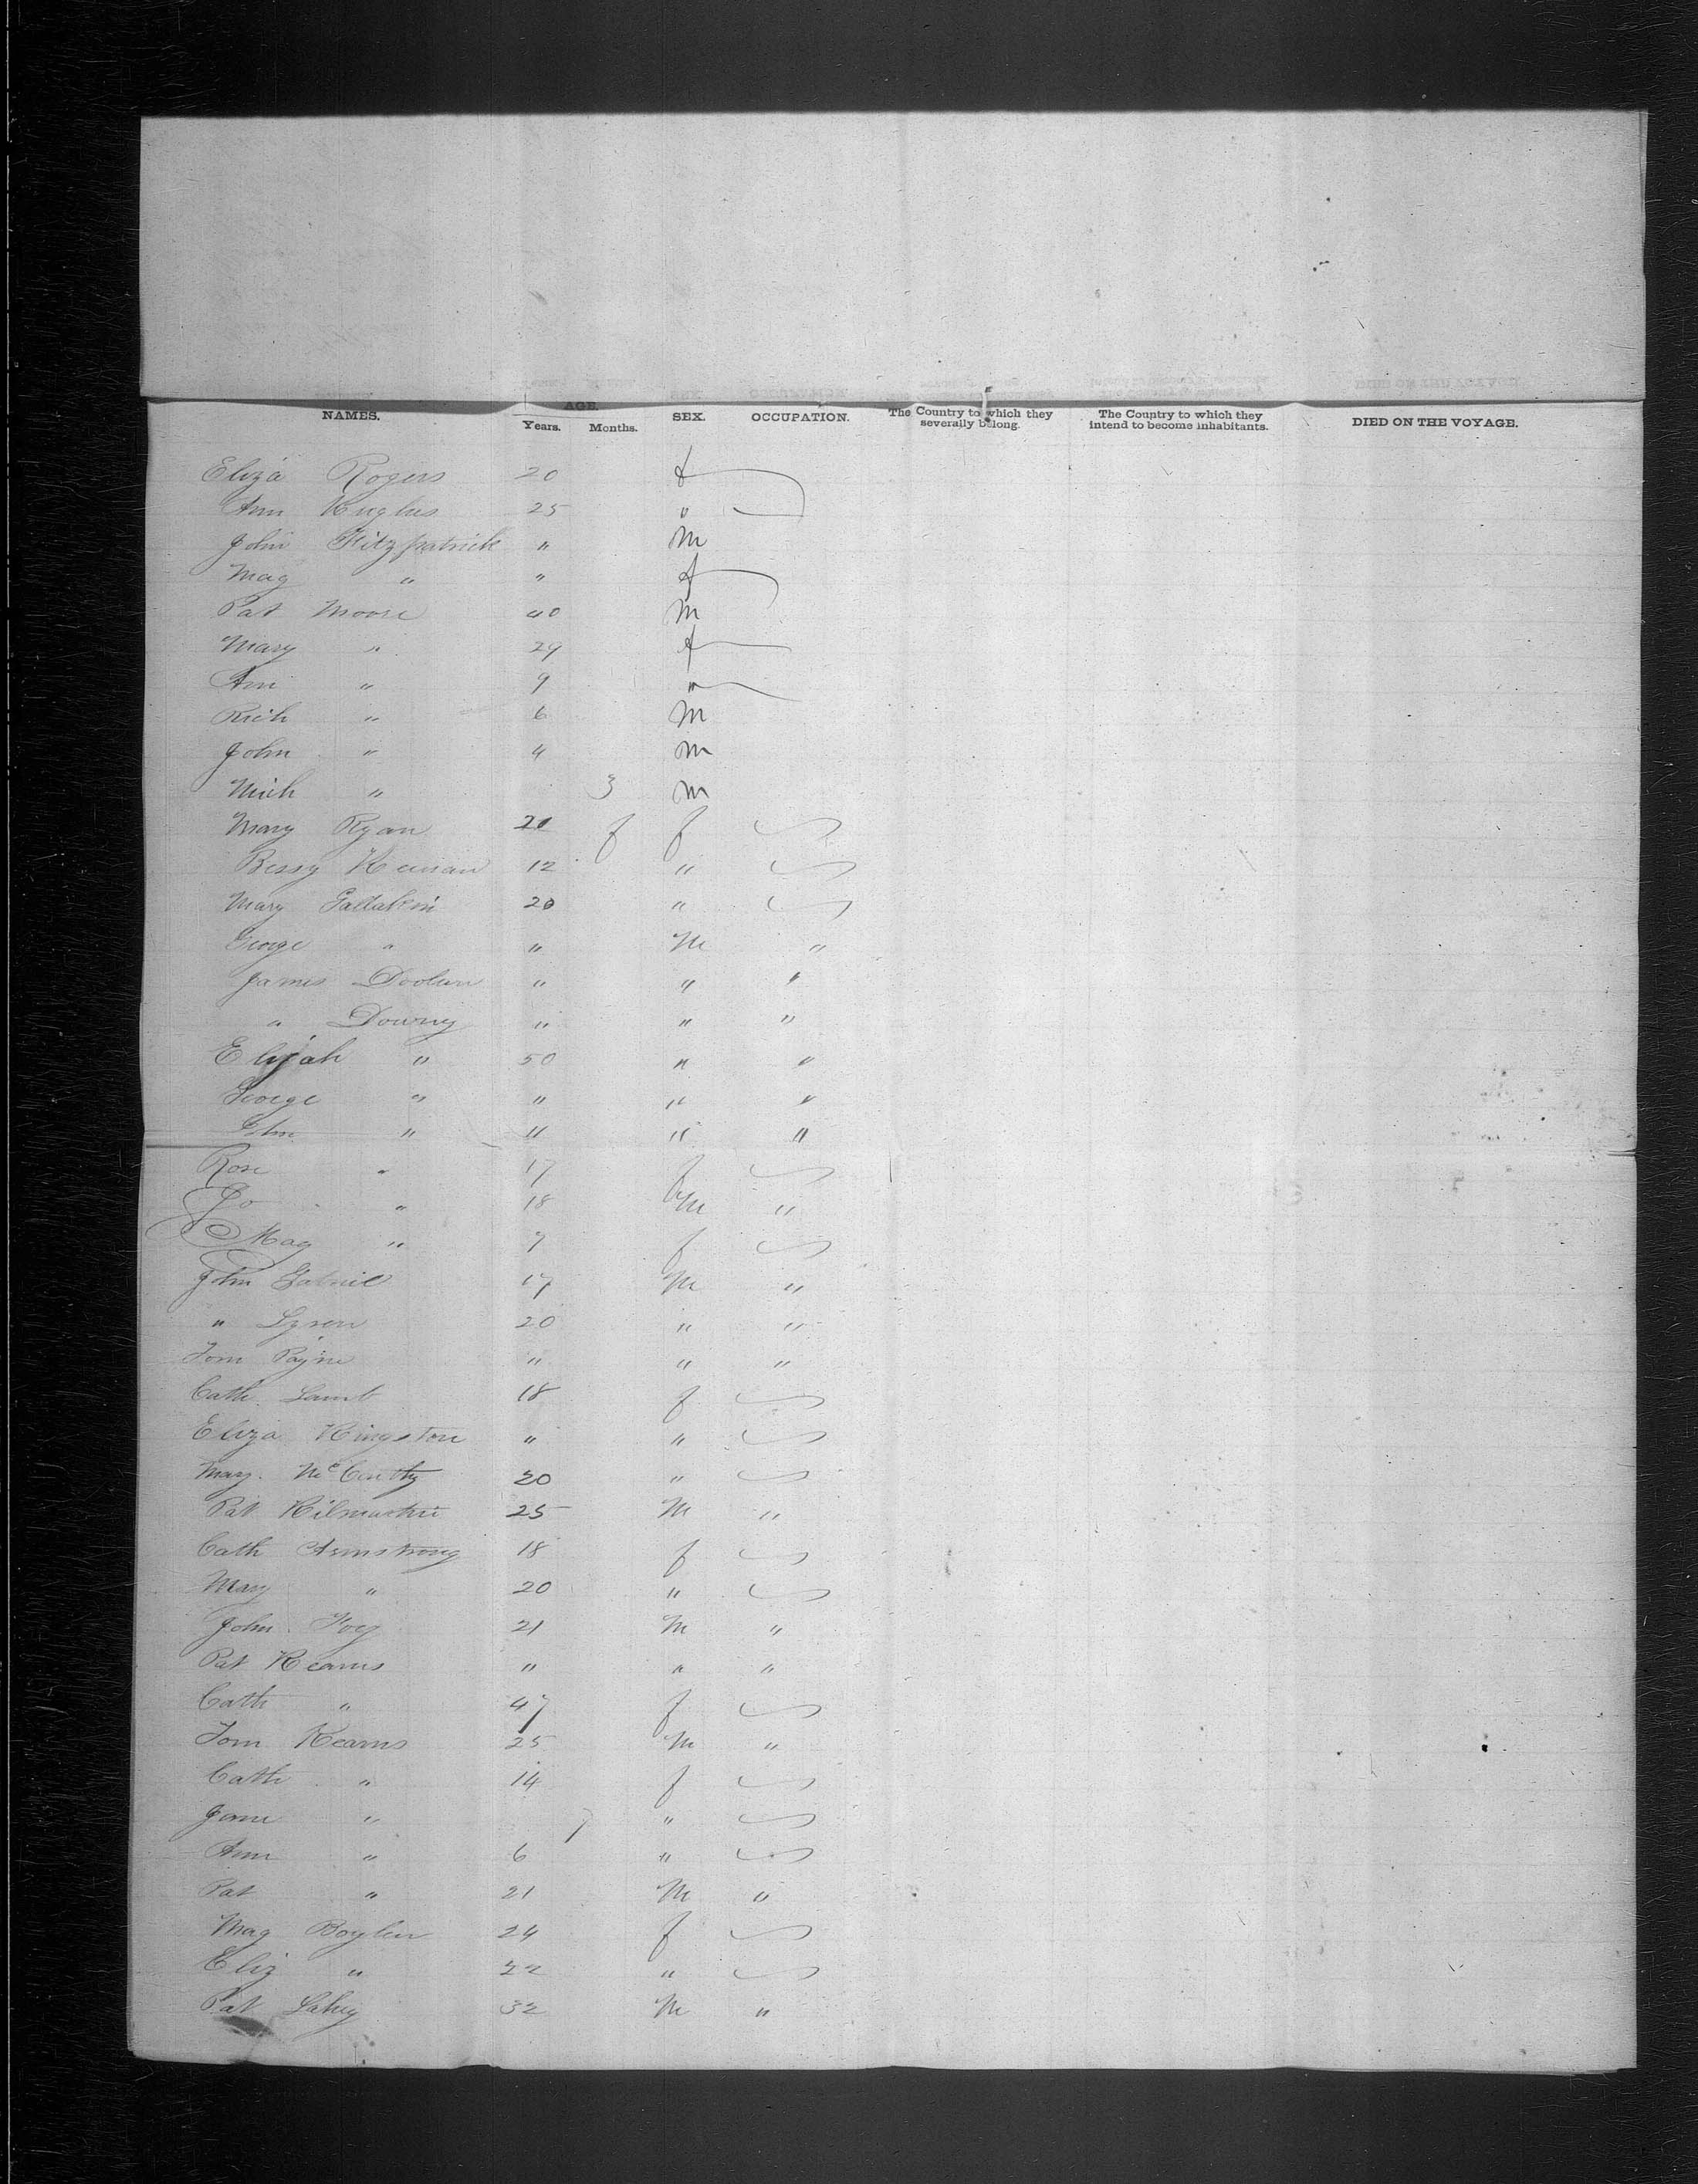 NAMES. AGE. SEX. OCCUPATION. The Country to which they severally belong. The Country to which they intend to become inhabitants. DIED ON THE VOYAGE.
Years. Months.
Eliza Rogers 20 f
Ann Hughes 25 "
John Fitzpatrick " M
Mag " " f
Pat Moore 40 M
Mary " 29 f
Ann " 9 "
Rich " 6 M
John " 4 M
Mich " 3 M
Mary Ryan 21 f f
Bessy Keenan 12 "
Mary 20 "
George " " M "
James Doolan " " "
" Downy " " "
Elijah " 50 " "
George " " " "
" " " "
Rose " 17 f
Jo " 18 M "
Mag " 7 f
John 17 M "
" 20 " "
Tom Payne " " "
Cath. Lamb 18 f
Eliza Kingston " "
Mary. McCarthy 20 "
Pat 25 M "
Cath Armstrong 18 f
Mary " 20 "
John Foy 21 M "
Pat Kearns " " "
Cath " 47 f
Tom Kearns 25 M "
Cath " 14 f
Jane " 7 "
Ann " 6 "
Pat " 21 M "
Mag Boylen 24 f
Eliz " 22 "
Pat Lahey 32 M "